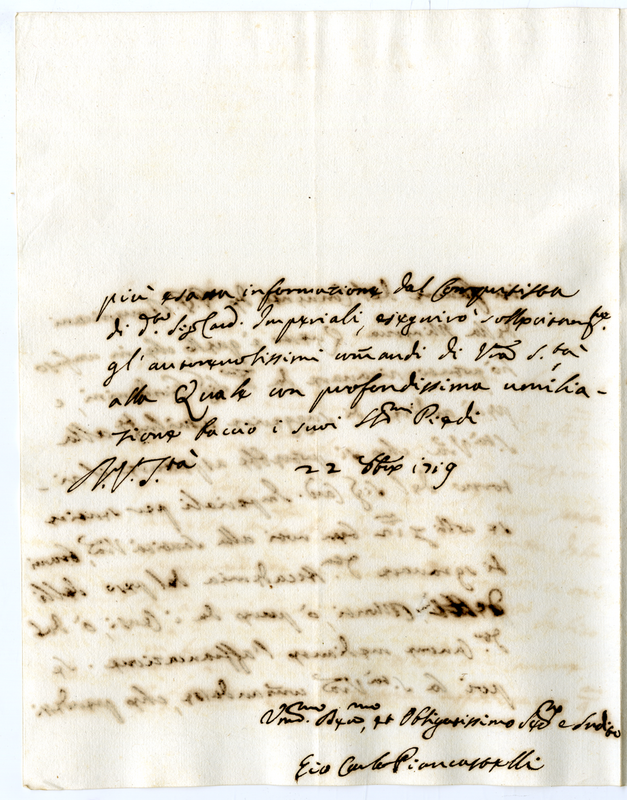 più esatta informazione dal Computista
di d.to Sig.r Card. Imperiali, eseguirò sollecitam.te
gl'autorevolissimi com̃andi di V.ra S.tà
alla Quale con profondissima umilia-
zione baccio i suoi SS.mi Piedi
22 1719
Um.mo Dev.mo, et Obligatissimo Ser.re e Sudito
Gio Carlo Piancastelli